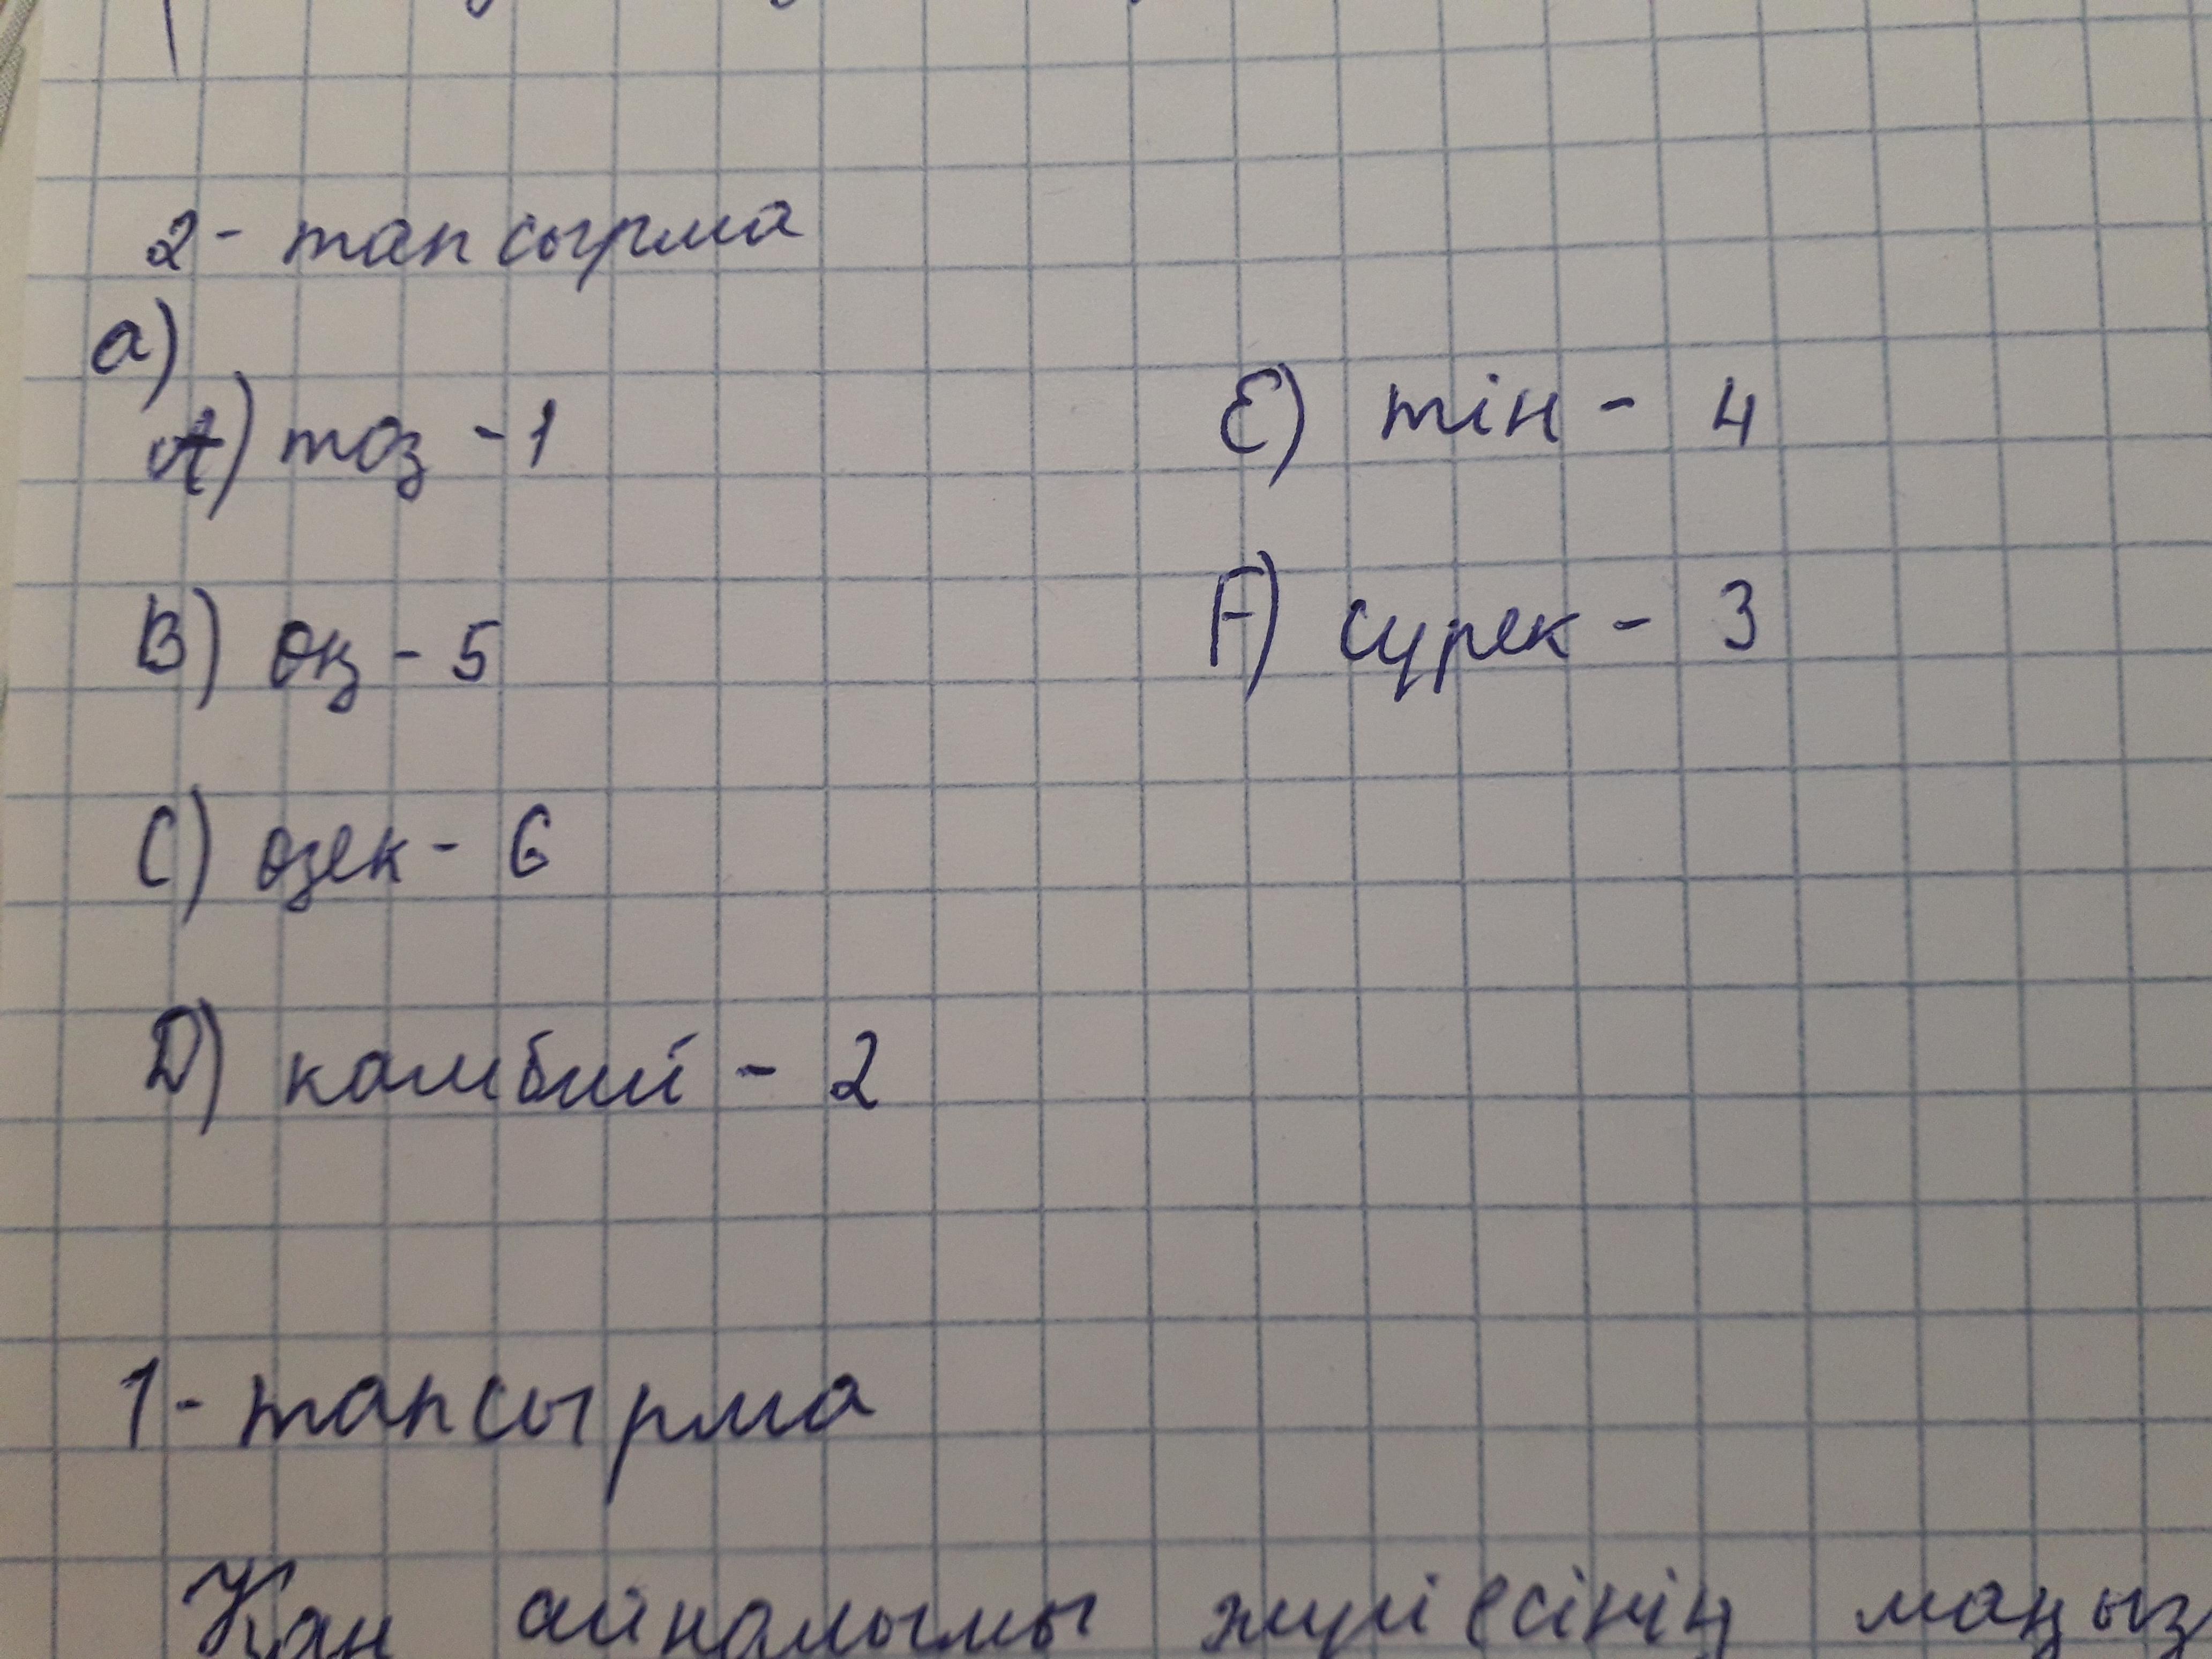 2- тапсырма
а)
А) тоз -1
В) өң - 5
С) өзек - 6
D) камбий - 2
Е) тін - 4
F) сүрек - 3
1- тапсырма
Қан айналымы жүйесінің маңыз